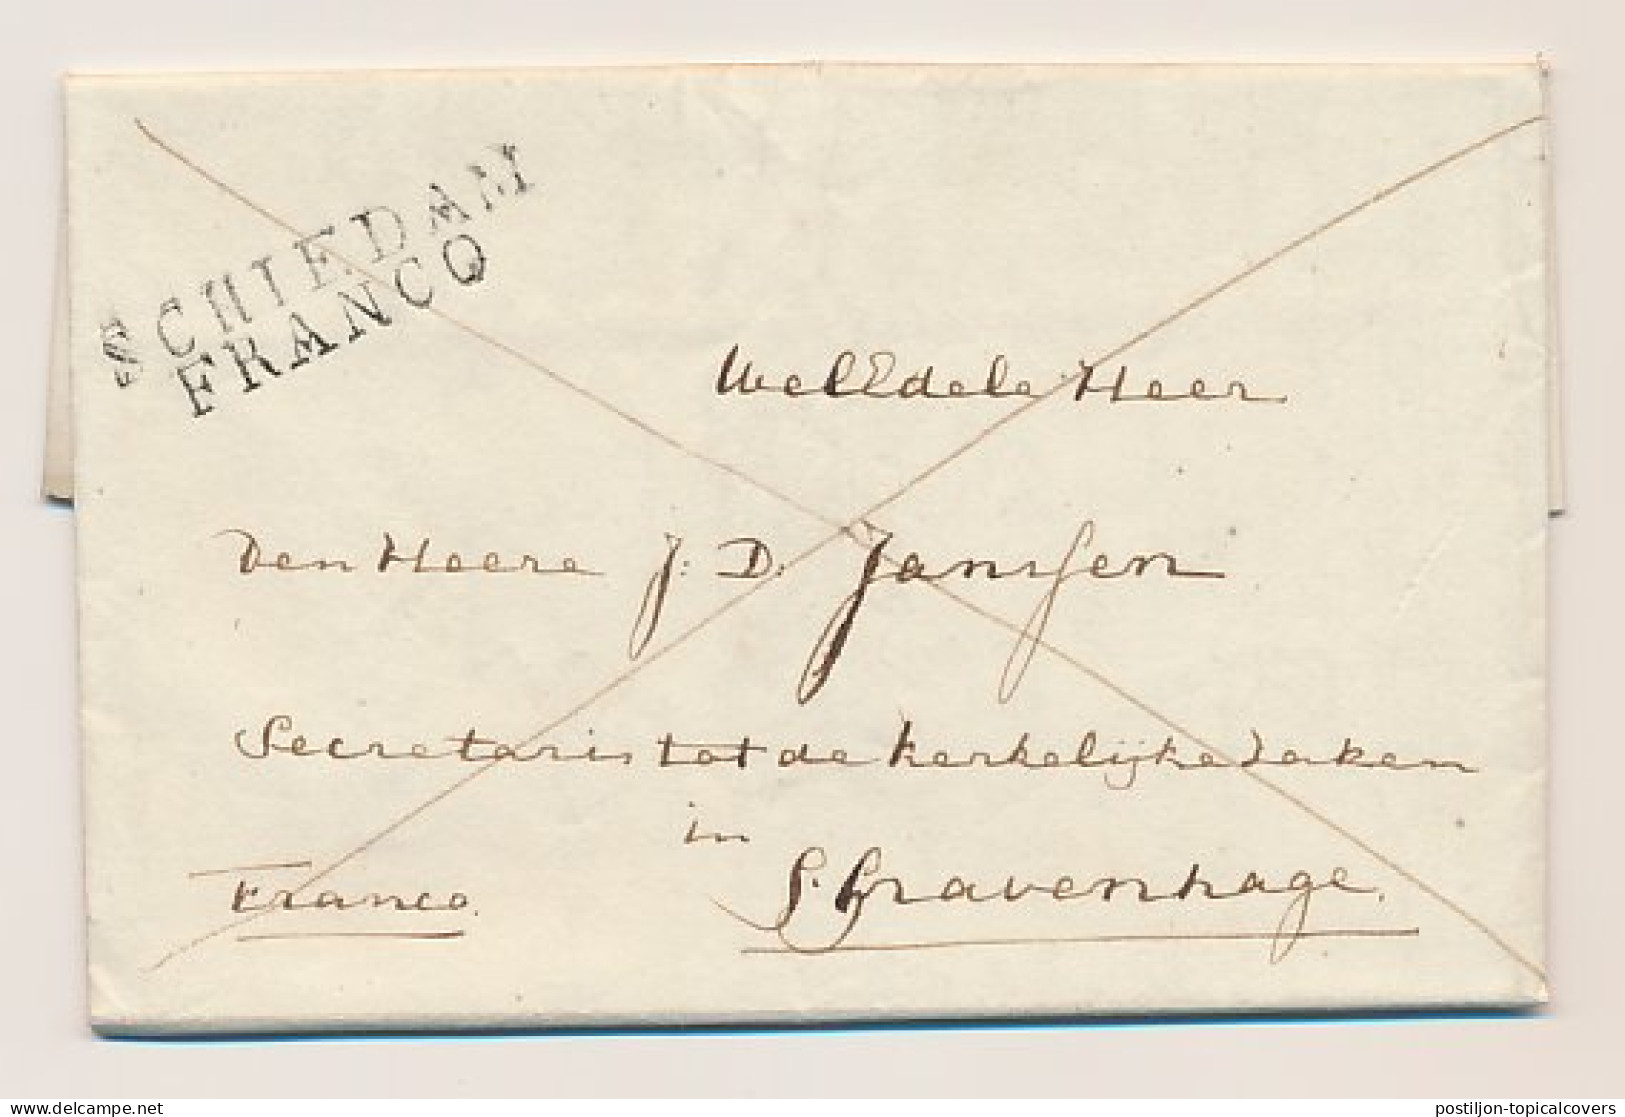 SCHIEDAM
FRANCO
WelEdele Heer
Den Heere J: D: Janssen
Secretaris tot de kerkelijke Zaken
in
Franco. S. Gravenhage.
delcampe.net
postiljon-topicalcovers